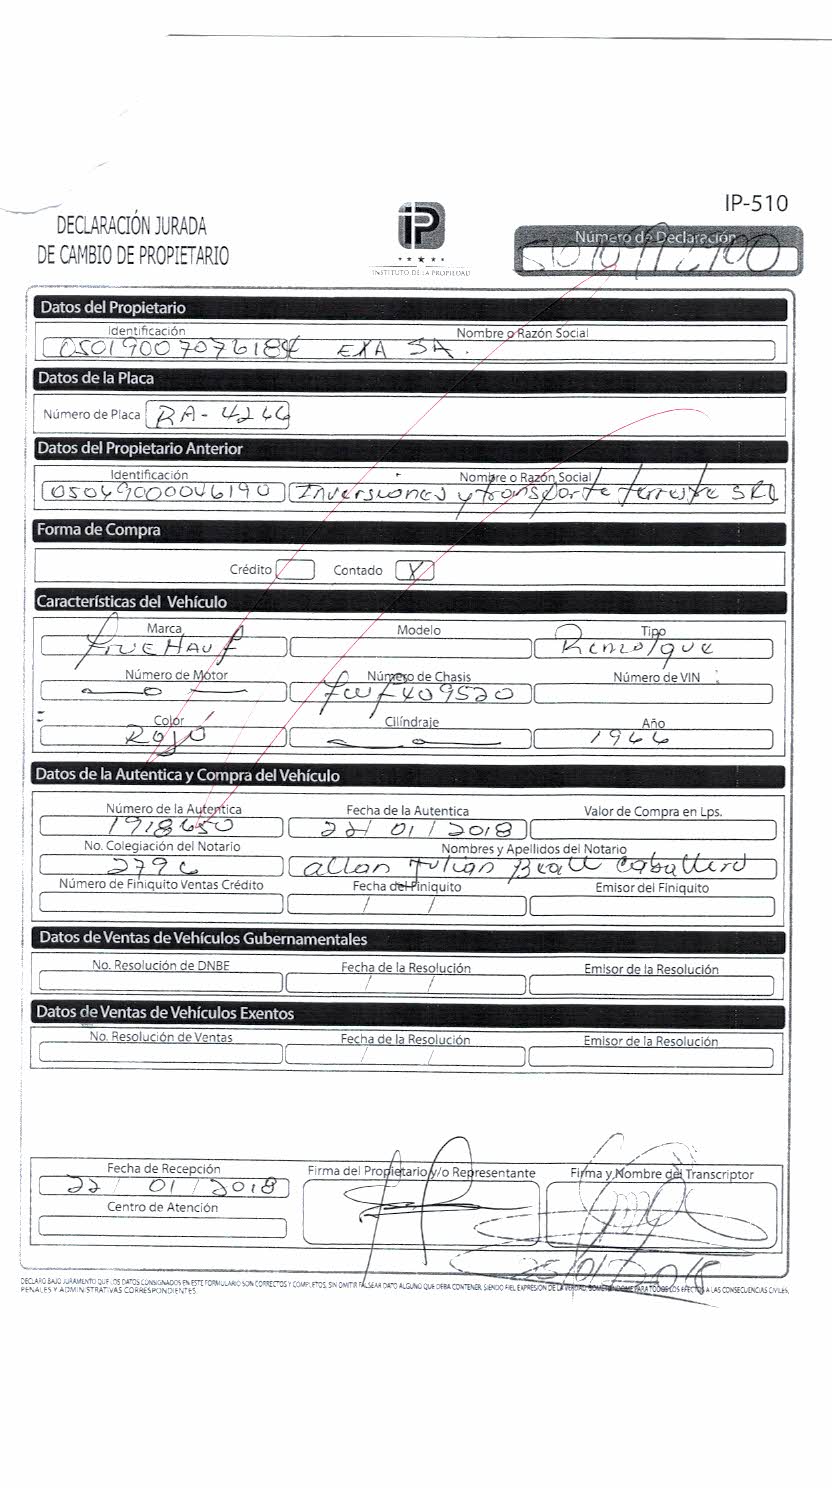 IP-510
DECLARACIÓN JURADA
DE CAMBIO DE PROPIETARIO
iP
INSTITUTO DE LA PROPIEDAD
Número de Declaración
Datos del Propietario
Identificación Nombre o Razón Social
EXA SA.
Datos de la Placa
Número de Placa RA-4266
Datos del Propietario Anterior
Identificación Nombre o Razón Social
05049000046190 Inversiones y transporte terrestre SRL
Forma de Compra
Crédito Contado X
Características del Vehículo
Marca Modelo Tipo
frueHauf Remolque
Número de Motor Número de Chasis Número de VIN
— o — fwf409520
Color Cilíndraje Año
Rojo — o — 1966
Datos de la Autentica y Compra del Vehículo
Número de la Autentica Fecha de la Autentica Valor de Compra en Lps.
1918650 22/01/2018
No. Colegiación del Notario Nombres y Apellidos del Notario
2796 allan Julian Caballero
Número de Finiquito Ventas Crédito Fecha del Finiquito Emisor del Finiquito
/ /
Datos de Ventas de Vehículos Gubernamentales
No. Resolución de DNBE Fecha de la Resolución Emisor de la Resolución
/ /
Datos de Ventas de Vehículos Exentos
No. Resolución de Ventas Fecha de la Resolución Emisor de la Resolución
/ /
Fecha de Recepción Firma del Propietario y/o Representante Firma y Nombre del Transcriptor
22/ 01 / 2018
Centro de Atención
25/01/2018
DECLARO BAJO JURAMENTO QUE LOS DATOS CONSIGNADOS EN ESTE FORMULARIO SON CORRECTOS Y COMPLETOS, SIN OMITIR FALSEAR DATO ALGUNO QUE DEBA CONTENER, SIENDO FIEL EXPRESION DE LA VERDAD, SOMETIENDOME PARA TODOS LOS EFECTOS A LAS CONSECUENCIAS CIVILES,
PENALES Y ADMINISTRATIVAS CORRESPONDIENTES.